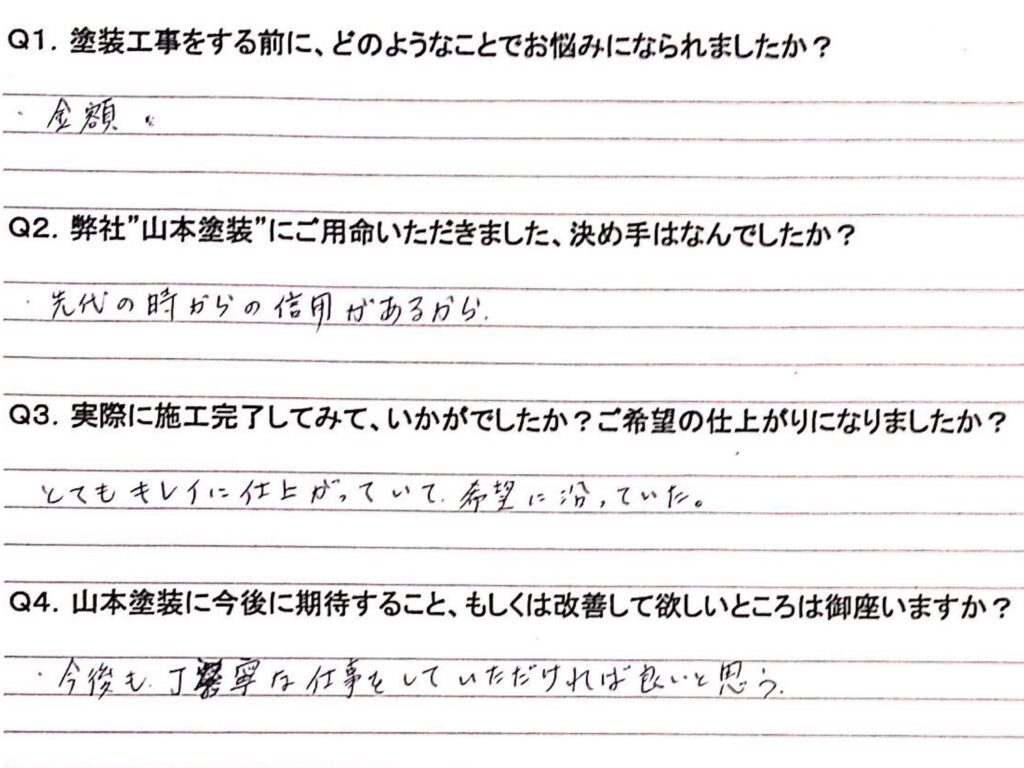 Q1. 塗装工事をする前に、どのようなことでお悩みになられましたか？
・金額。
Q2. 弊社”山本塗装”にご用命いただきました、決め手はなんでしたか？
・先代の時からの信用があるから.
Q3. 実際に施工完了してみて、いかがでしたか？ご希望の仕上がりになりましたか？
とてもキレイに仕上がっていて、希望に沿っていた。
Q4. 山本塗装に今後に期待すること、もしくは改善して欲しいところは御座いますか？
・今後も、丁寧な仕事をしていただければ良いと思う.